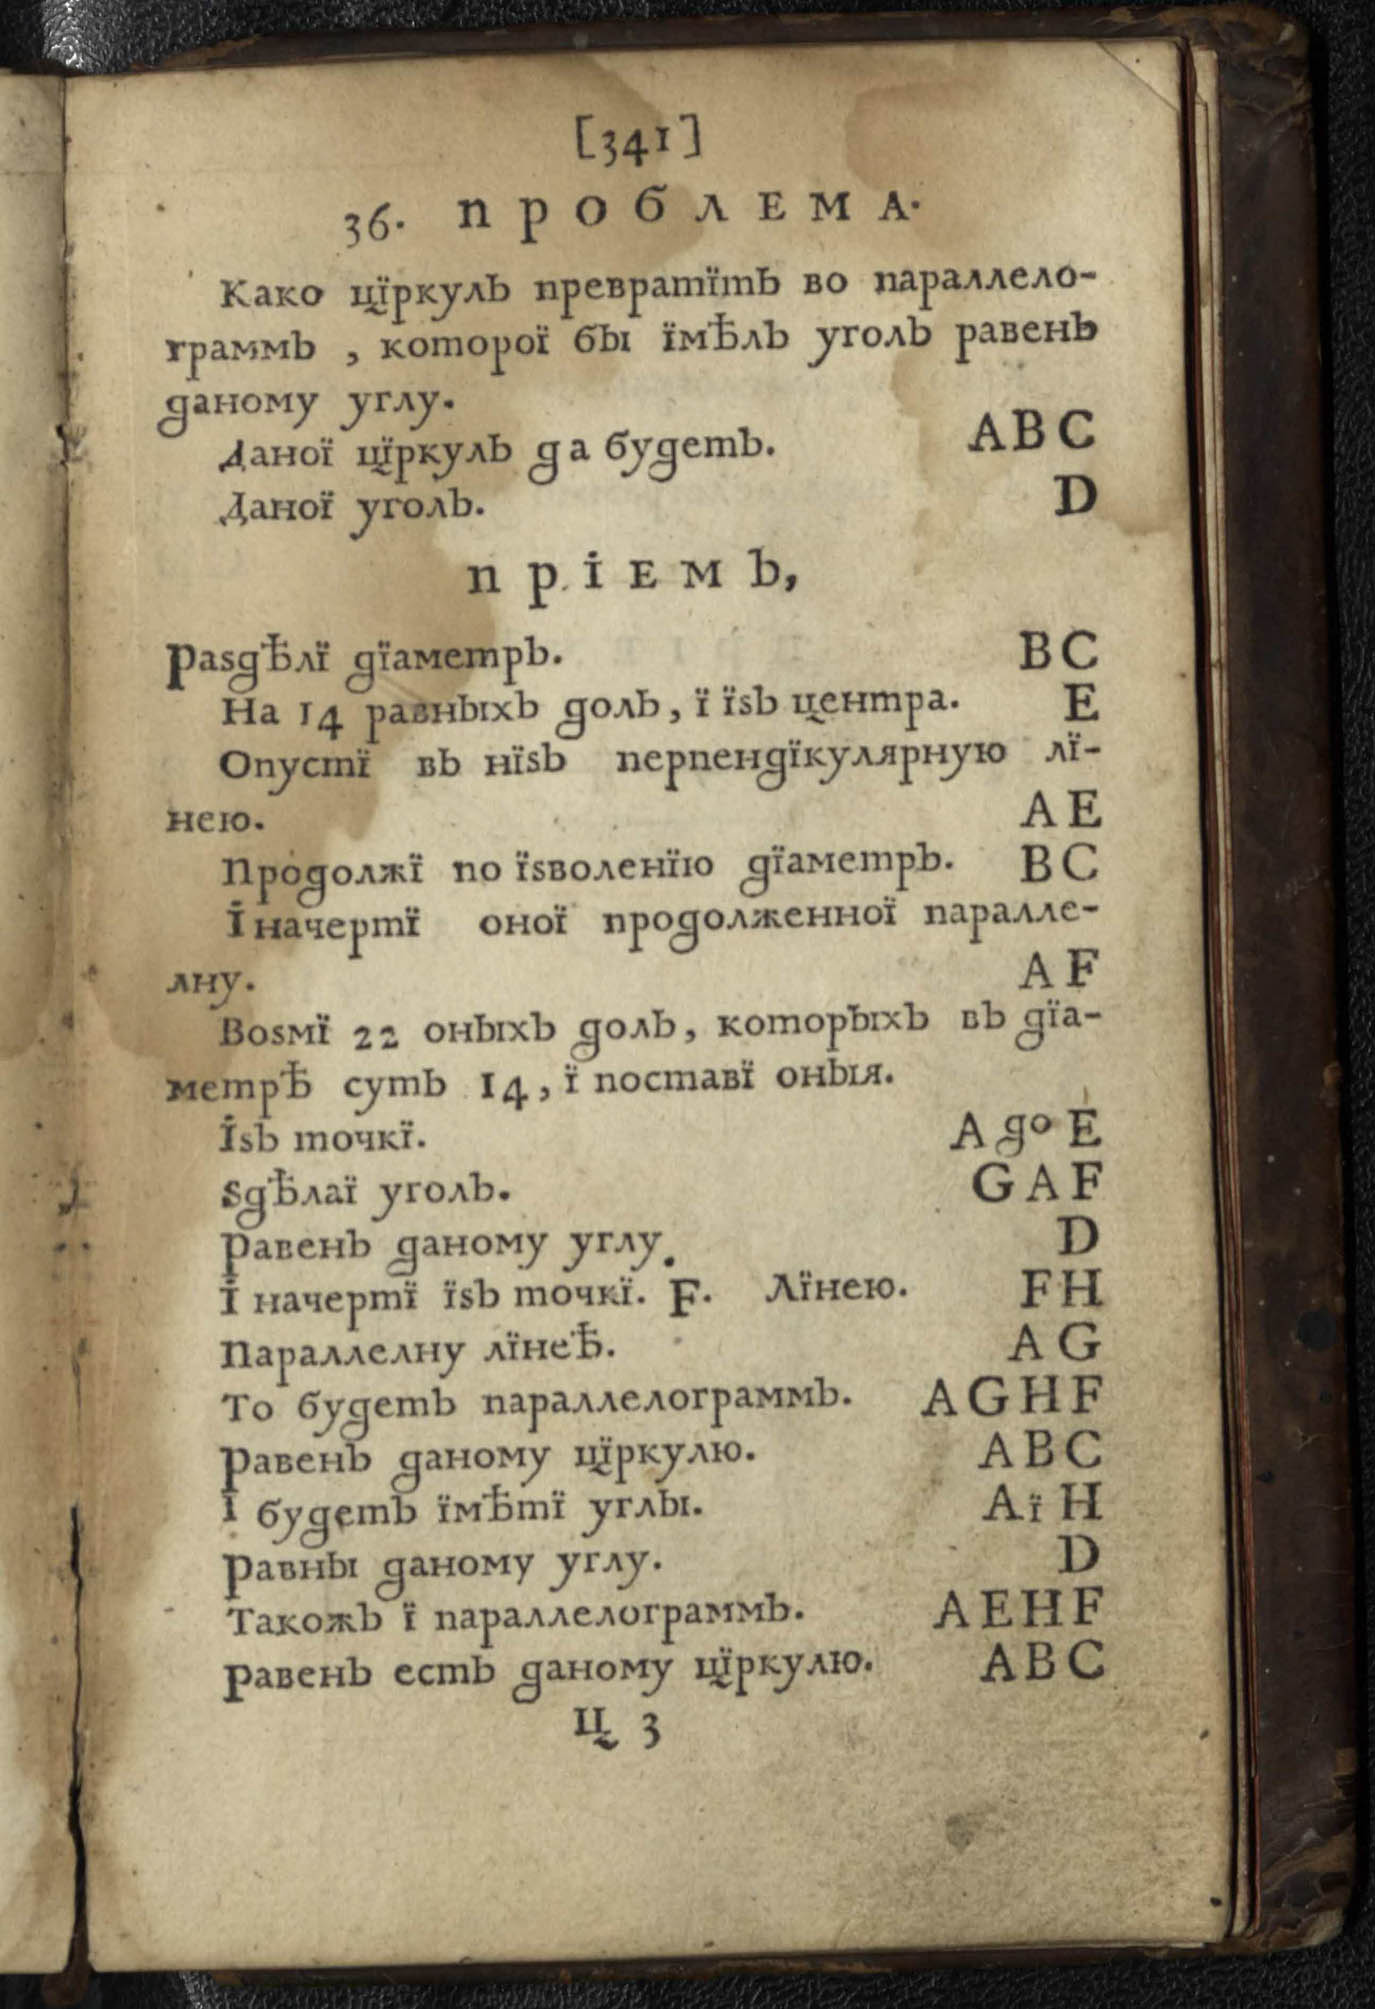 [341]
36. ПРОБЛЕМА.
Како цїркуль превратїть во параллело-
граммъ , которої бы їмѣлъ уголъ равенъ
даному углу.
Даної цїркуль да будетъ. ABC
Даної уголъ. D
ПРІЕМЪ,
Раѕдѣлї дїаметръ. BC
На 14 равныхъ доль, ї їѕъ центра. E
Опустї въ нїѕъ перпендїкулярную лї-
нею. AE
Продолжї по їѕволенїю дїаметръ. BC
І начертї оної продолженної паралле-
лну. AF
Воѕмї 22 оныхъ доль, которыхъ въ дїа-
метрѣ суть 14, ї поставї оныя.
Іѕъ точкї. A до E
Ѕдѣлаї уголъ. GAF
Равенъ даному углу. D
І начертї їѕъ точкї. F. Лїнею. FH
Параллелну лїнеѣ. AG
То будетъ параллелограммъ. AGHF
Равенъ даному цїркулю. ABC
І будетъ їмѣтї углы. A ї H
Равны даному углу. D
Такожъ ї параллелограммъ. AEHF
Равенъ есть даному цїркулю. ABC
Ц 3